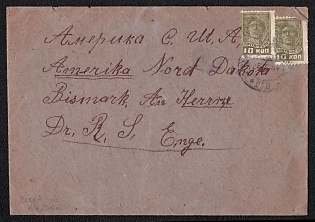 Америка С. Ш. А.
Amerika Nord Dakota
Bismark, An Herrn
Dr. R. S. Enge.
10 КОП 10 КОП